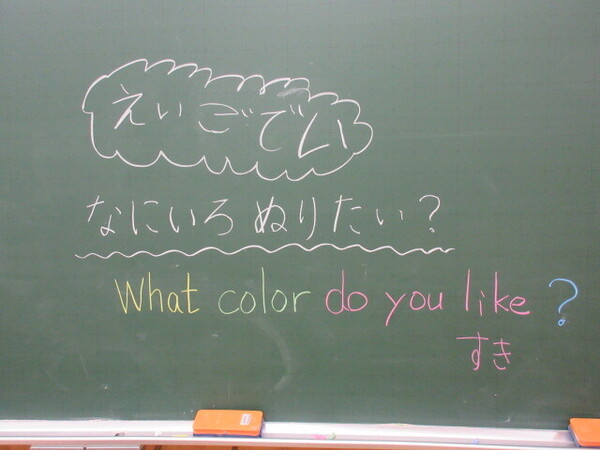 えいごで
なにいろ ぬりたい?
What color do you like ?
すき